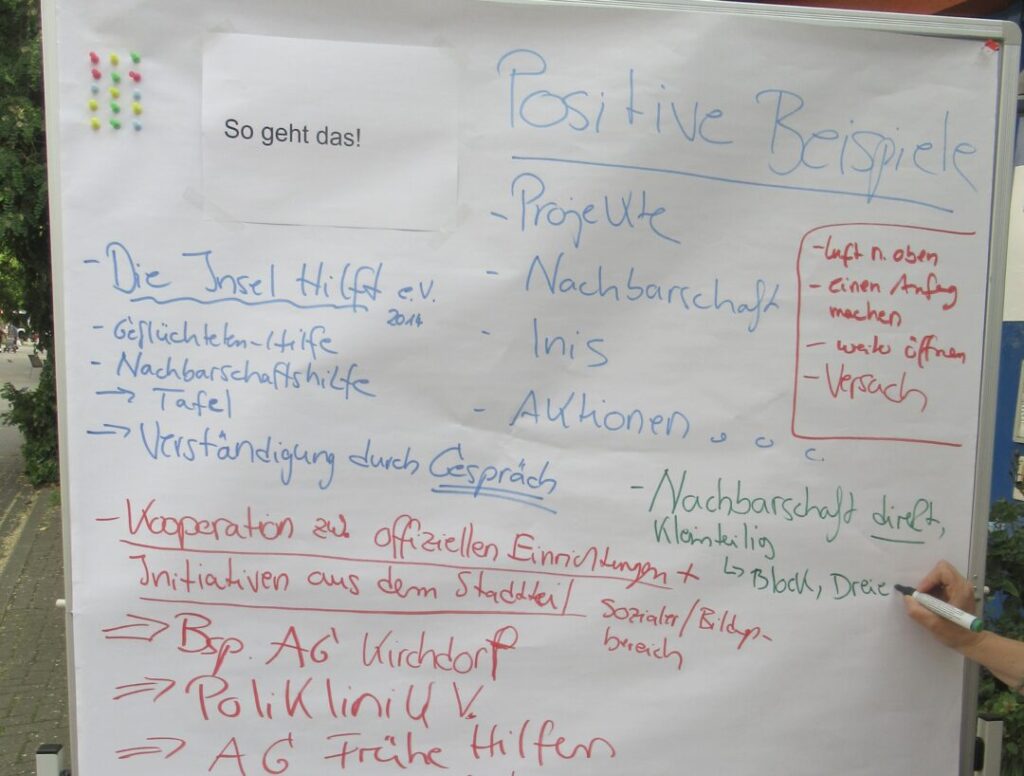 So geht das!
Positive Beispiele
- Projekte
- Nachbarschaft
- Inis
- Aktionen
- Luft n. oben
- einen Anfang
machen
- weiter öffnen
- Versuch
- Die Insel Hilft e.V.
2014
- Geflüchteten-Hilfe
- Nachbarschaftshilfe
→ Tafel
→ Verständigung durch Gespräch
- Nachbarschaft direkt,
Kleinteilig
↳ Block, Dreie
- Kooperation zw. offiziellen Einrichtungen +
Initiativen aus dem Stadtteil
Sozialer/Bildungs-
bereich
⇒ Bsp. AG Kirchdorf
⇒ Poliklinik V.
⇒ AG Frühe Hilfen